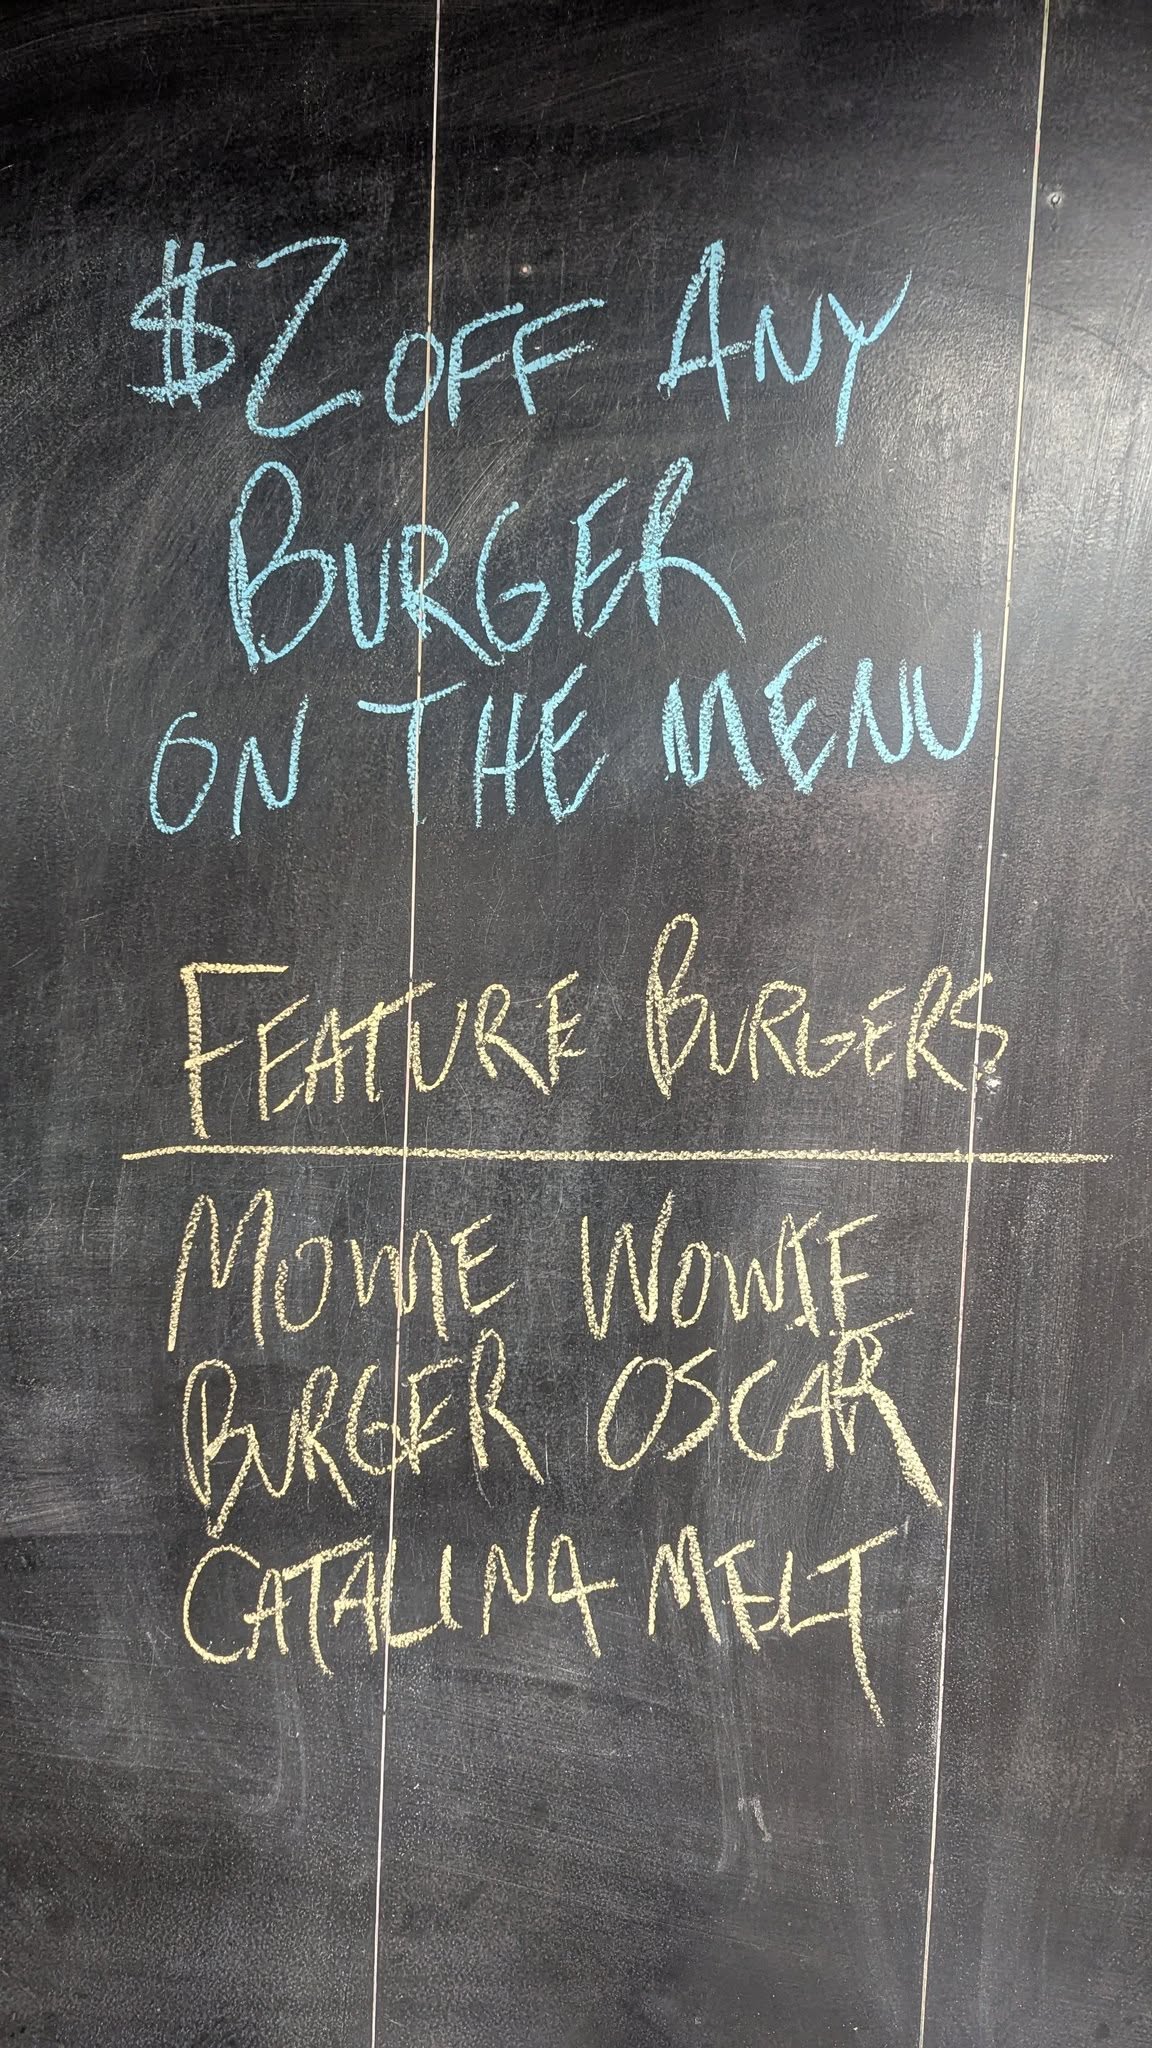 $2 OFF ANY
BURGER
ON THE MENU
FEATURE BURGERS
MOWIE WOWIE
BURGER OSCAR
CATALINA MELT